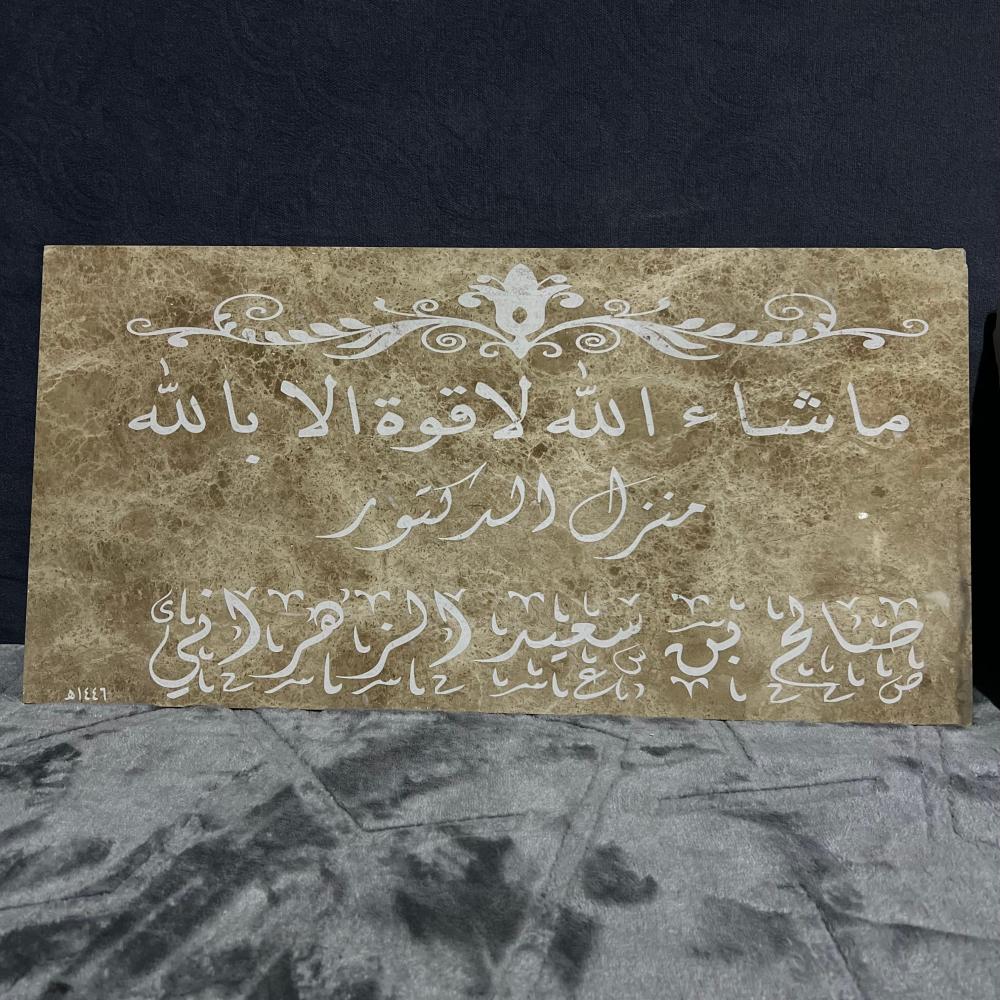 ماشاء الله لا قوة الا بالله
منزل الدكتور
صالح بن سعيد الزهراني
١٤٤٦هـ